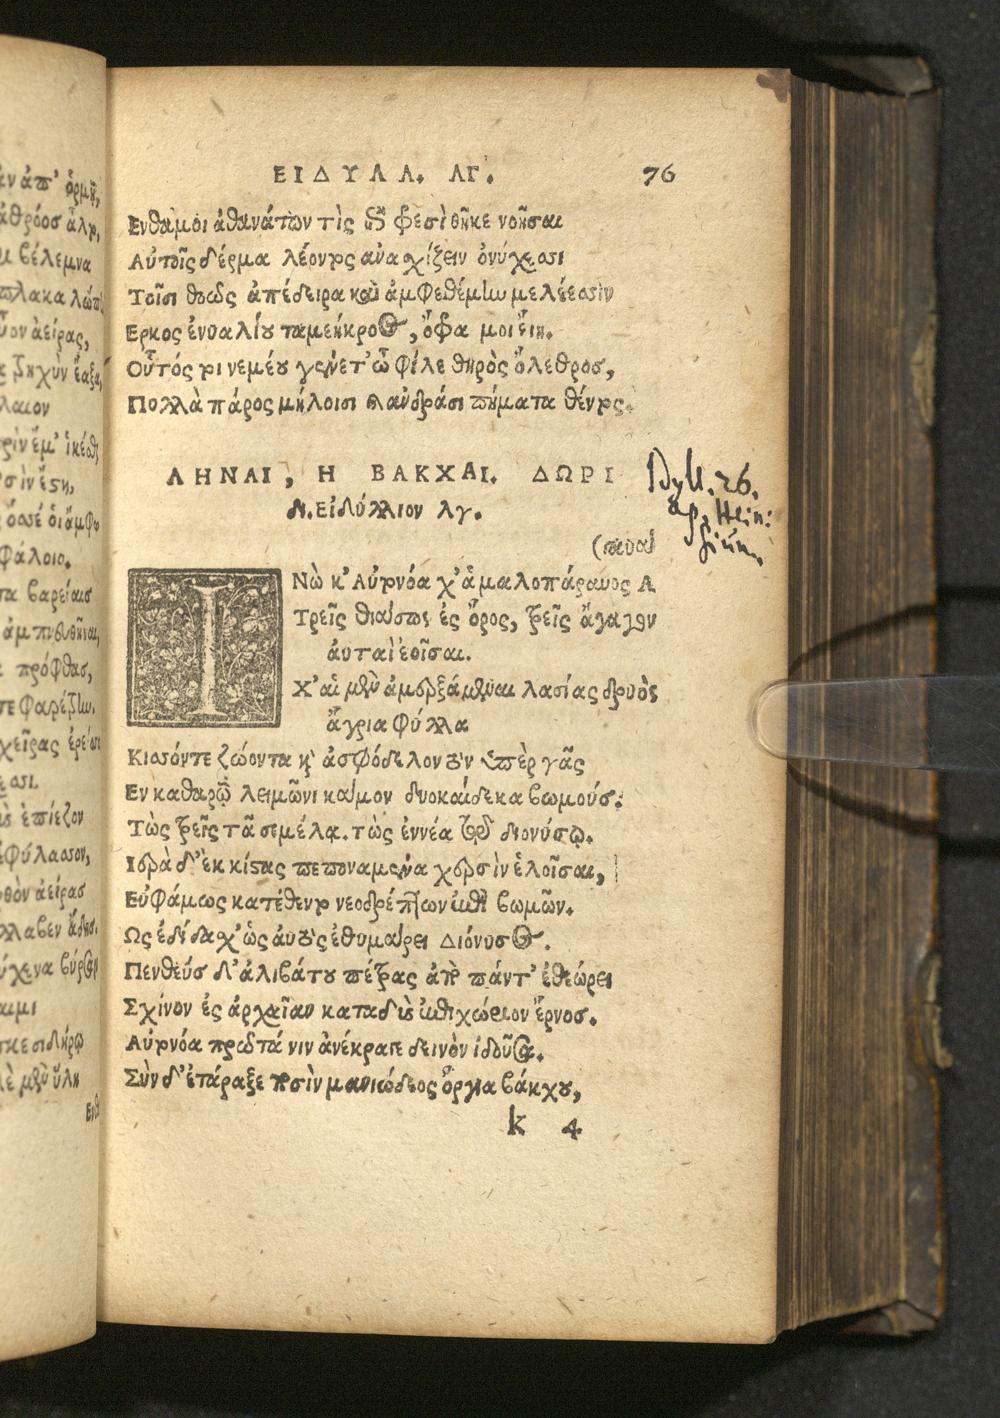 ΕΙΔΥΛΛ. ΛΓ. 76
Ενθα μοι ἀθανάτων τὶς ἐπὶ φρεσὶ θῆκε νοῆσαι
Αὐτοῖς δέρμα λέοντος ἀνα χίζειν ὀνύχεσσι
Τοῖσι θοῶς ἀπέδειρα καὶ ἀμφεθέμην μελέεσσιν
Ερκος ἐνυαλίου ταμεσίχροος, ὄφρα μοι εἴη.
Οὗτός τοι νεμέου γένετ' ὦ φίλε θηρὸς ὄλεθρος,
Πολλὰ πάρος μήλοισι καὶ ἀνδράσι πήματα θέντος.
ΛΗΝΑΙ, Η ΒΑΚΧΑΙ. ΔΩΡΙ
δι. Εἰδύλλιον λγ.
Idyll. 26.
ap. Hein:
sium.
(παυα
ΙΝὼ κ' Αὐτονόα χ' ἁ μαλοπάραυος Α
Τρεῖς θιάσως ἐς ὄρος, τρεῖς ἄγαγον
ἀυταὶ ἐοῖσαι.
Χ' αἱ μὲν ἀμερξάμεναι λασίας δρυὸς
ἄγρια φύλλα
Κισσόντε ζώοντα κ' ἀσφόδελον τὸν ὑπὲρ γᾶς
Εν καθαρῷ λειμῶνι κάμον δυοκαίδεκα βωμούς:
Τὼς τρεῖς τᾶ σεμέλα. τὼς ἐννέα τῷ διονύσῳ.
Ιερὰ δ' ἐκ κίστας πεποναμένα χερσὶν ἑλοῖσαι,
Εὐφάμως κατέθεντο νεοδρέπτων ἐπὶ βωμῶν.
Ως ἐδίδαχ' ὡς αὐτὸς ἐθυμάρει Διόνυσος.
Πενθεύς δ' ἀλιβάτου πέτρας ἄπο πάντ' ἐθεώρει
Σχίνον ἐς ἀρχαῖαν καταδὺς ἐπιχώριον ἔρνος.
Αὐτονόα πρώτα νιν ἀνέκραγε δεινὸν ἰδοῦσα.
Σὺν δ' ἐτάραξε ποσὶν μανιώδεος ὄργια βάκχου,
k 4